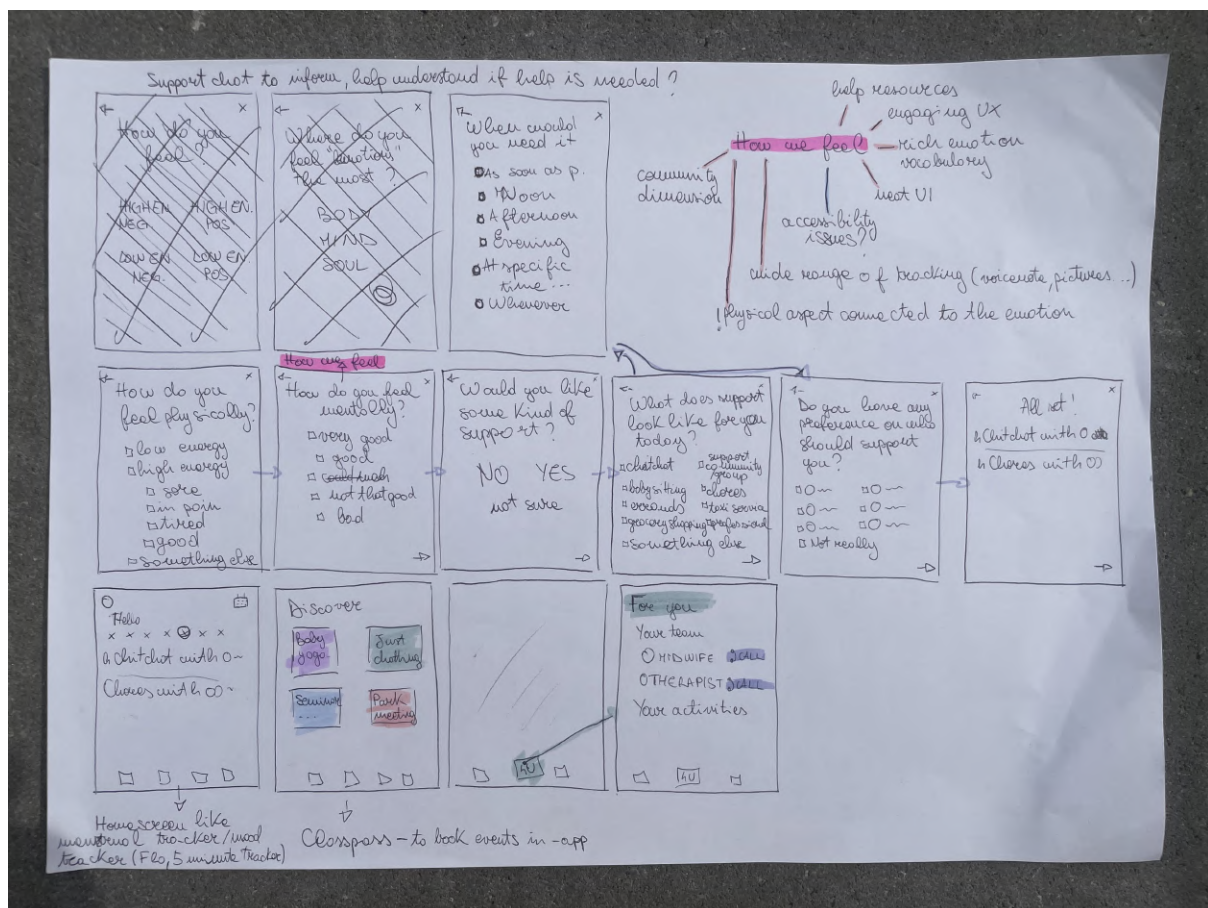 Support chat to inform, help understand if help is needed?
How do you
feel?
HIGH EN.
NEG.
HIGH EN.
POS
LOW EN
NEG.
LOW EN
POS.
Where do you
feel "emotions"
the most?
BODY
MIND
SOUL
When would
you need it
As soon as p.
Noon
Afternoon
Evening
At specific
time...
Whenever
How we feel
help resources
engaging UX
rich emotion
vocabulary
neat UI
accessibility
issues?
community
dimension
wide range of tracking (voicenote, pictures...)
! Physical aspect connected to the emotion
How do you
feel physically?
low energy
high energy
sore
in pain
tired
good
Something else
How we feel
How do you feel
mentally?
very good
good
not that good
bad
Would you like
some kind of
support?
NO YES
not sure
What does support
look like for you
today?
chitchat
support
community
group
babysitting
chores
errands
taxi service
grocery shopping
professional
Something else
Do you have any
preference on who
should support
you?
Not really
All set!
Chitchat with
Chores with
Hello
Chitchat with
Chores with
Discover
Baby
yoga
Just
chatting
Seminar
...
Park
meeting
4U
For you
Your team
MIDWIFE CALL
THERAPIST CALL
Your activities
4U
Homescreen like
menstrual tracker/mood
tracker (Flo, 5 minute tracker)
Classpass - to book events in-app